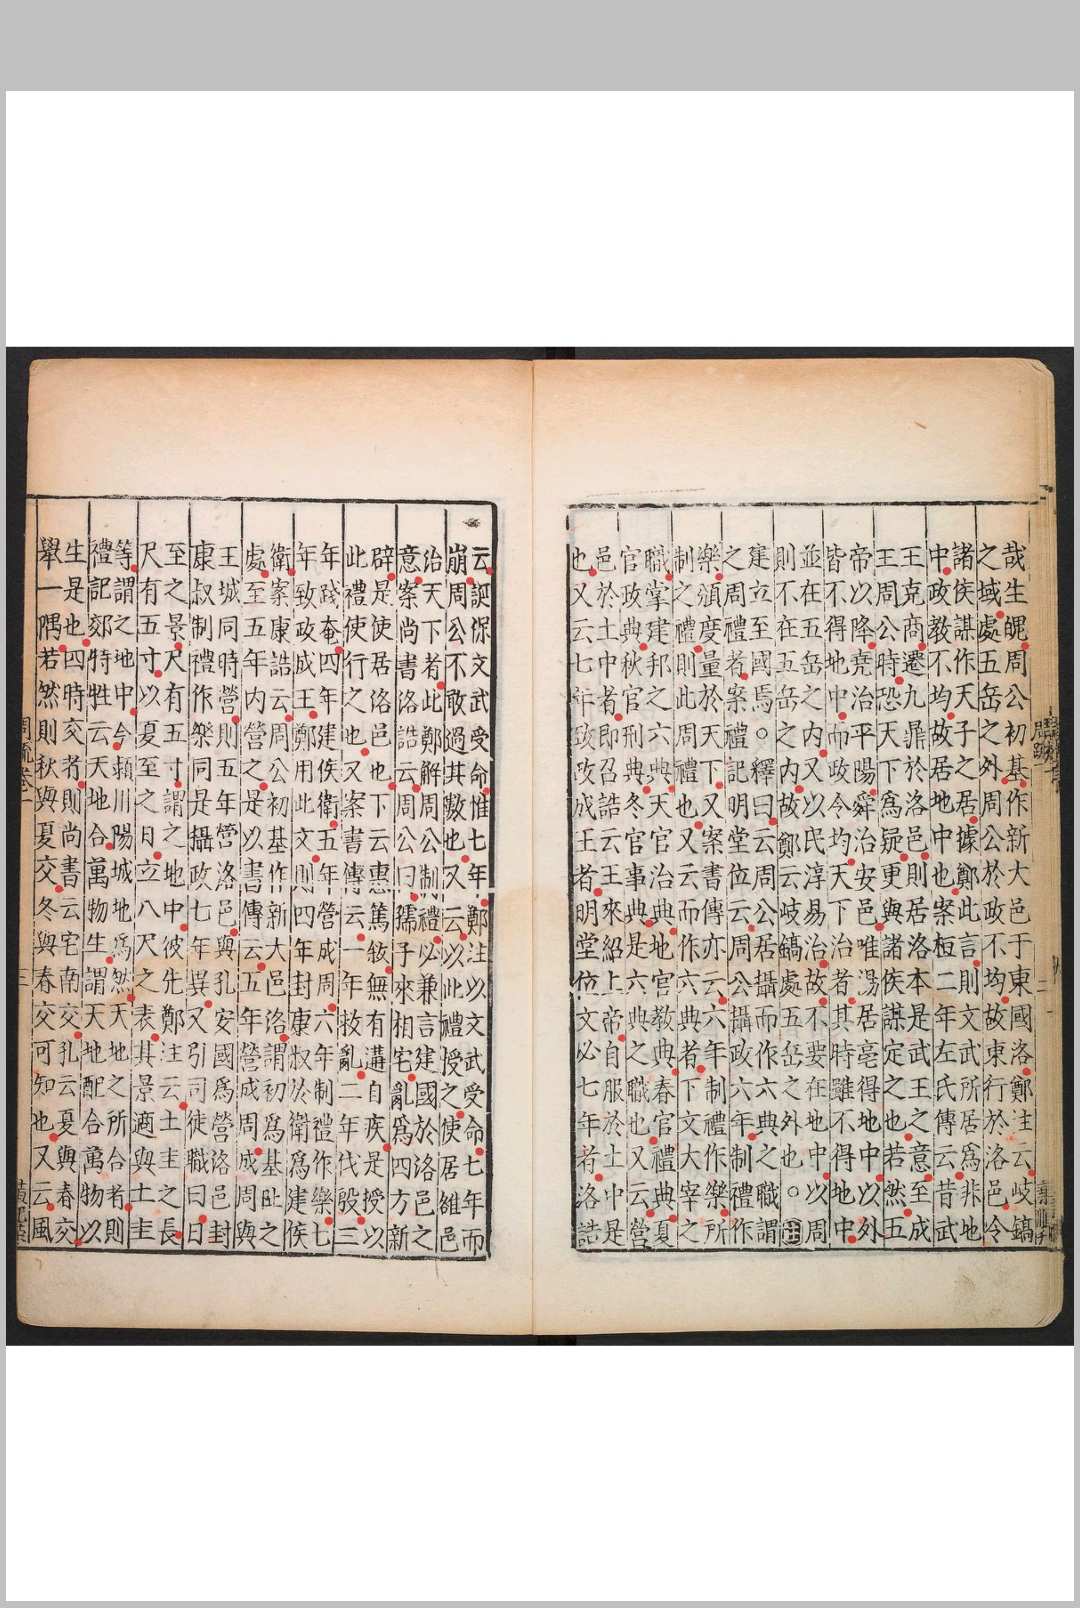 哉生魄周公初基作新大邑于東國洛鄭注云岐鎬
之域處五岳之外周公於政不均故東行於洛邑冷
諸侯謀作天子之居據鄭此言則文武所居爲非地
中政教不均故居地中也案桓二年左氏傳云昔武
王克商遷九鼎於洛邑則居洛本是武王之意至成
王周公時恐天下爲疑更與諸侯謀定之也若然五
帝以降堯治平陽舜治安邑唯湯居亳得地中以外
皆不得地中而政令均天下治者其時雖不得地中
並在五岳之內又以民淳易治故不要在地中以周
則不在五岳之內故鄭云岐鎬處五岳之外也○注
建立至國焉○釋曰云周公居攝而作六典之職謂
之周禮者案禮記明堂位云周公攝政六年制禮作
樂頒度量於天下又案書傳亦云六年制禮作樂所
制之禮則此周禮也又云而作六典者下文大宰之
職掌建邦之六典天官治典地官教典春官禮典夏
官政典秋官刑典冬官事典是六典之職也又云營
邑於土中者即召誥云王來紹上帝自服於土中是
也又云七年致政成王者明堂位文必七年者洛誥
云誕保文武受命惟七年鄭注以文武受命七年而
崩周公不敢過其數也又云以此禮授之使居雒邑
治天下者此鄭解周公制禮必兼言建國於洛邑之
意案尚書洛誥云周公曰孺子來相宅亂爲四方新
辟是使居洛邑也下云惠篤敘無有遘自疾是授以
此禮使行之也又案書傳云一年救亂二年伐殷三
年踐奄四年建侯衛五年營成周六年制禮作樂七
年致政成王鄭用此文則四年封康叔於衛爲建侯
衛案康誥云周公初基作新大邑洛謂初爲基址之
處至五年內營之是以書傳云五年營成周成周與
王城同時營則五年營洛邑與孔安國爲營洛邑封
康叔制禮作樂同是攝政七年異又引司徒職曰日
至之景尺有五寸謂之地中彼先鄭注云土圭之長
尺有五寸以夏至之日立八尺之表其景適與土圭
等謂之地中今潁川陽城地爲然大地之所合者則
禮記郊特牲云天地合萬物生謂天地配合萬物以
生是也四時交者則尚書云宅南交孔云夏與春交
舉一隅若然則秋與夏交冬與春交可知也又云風
周疏卷一
三